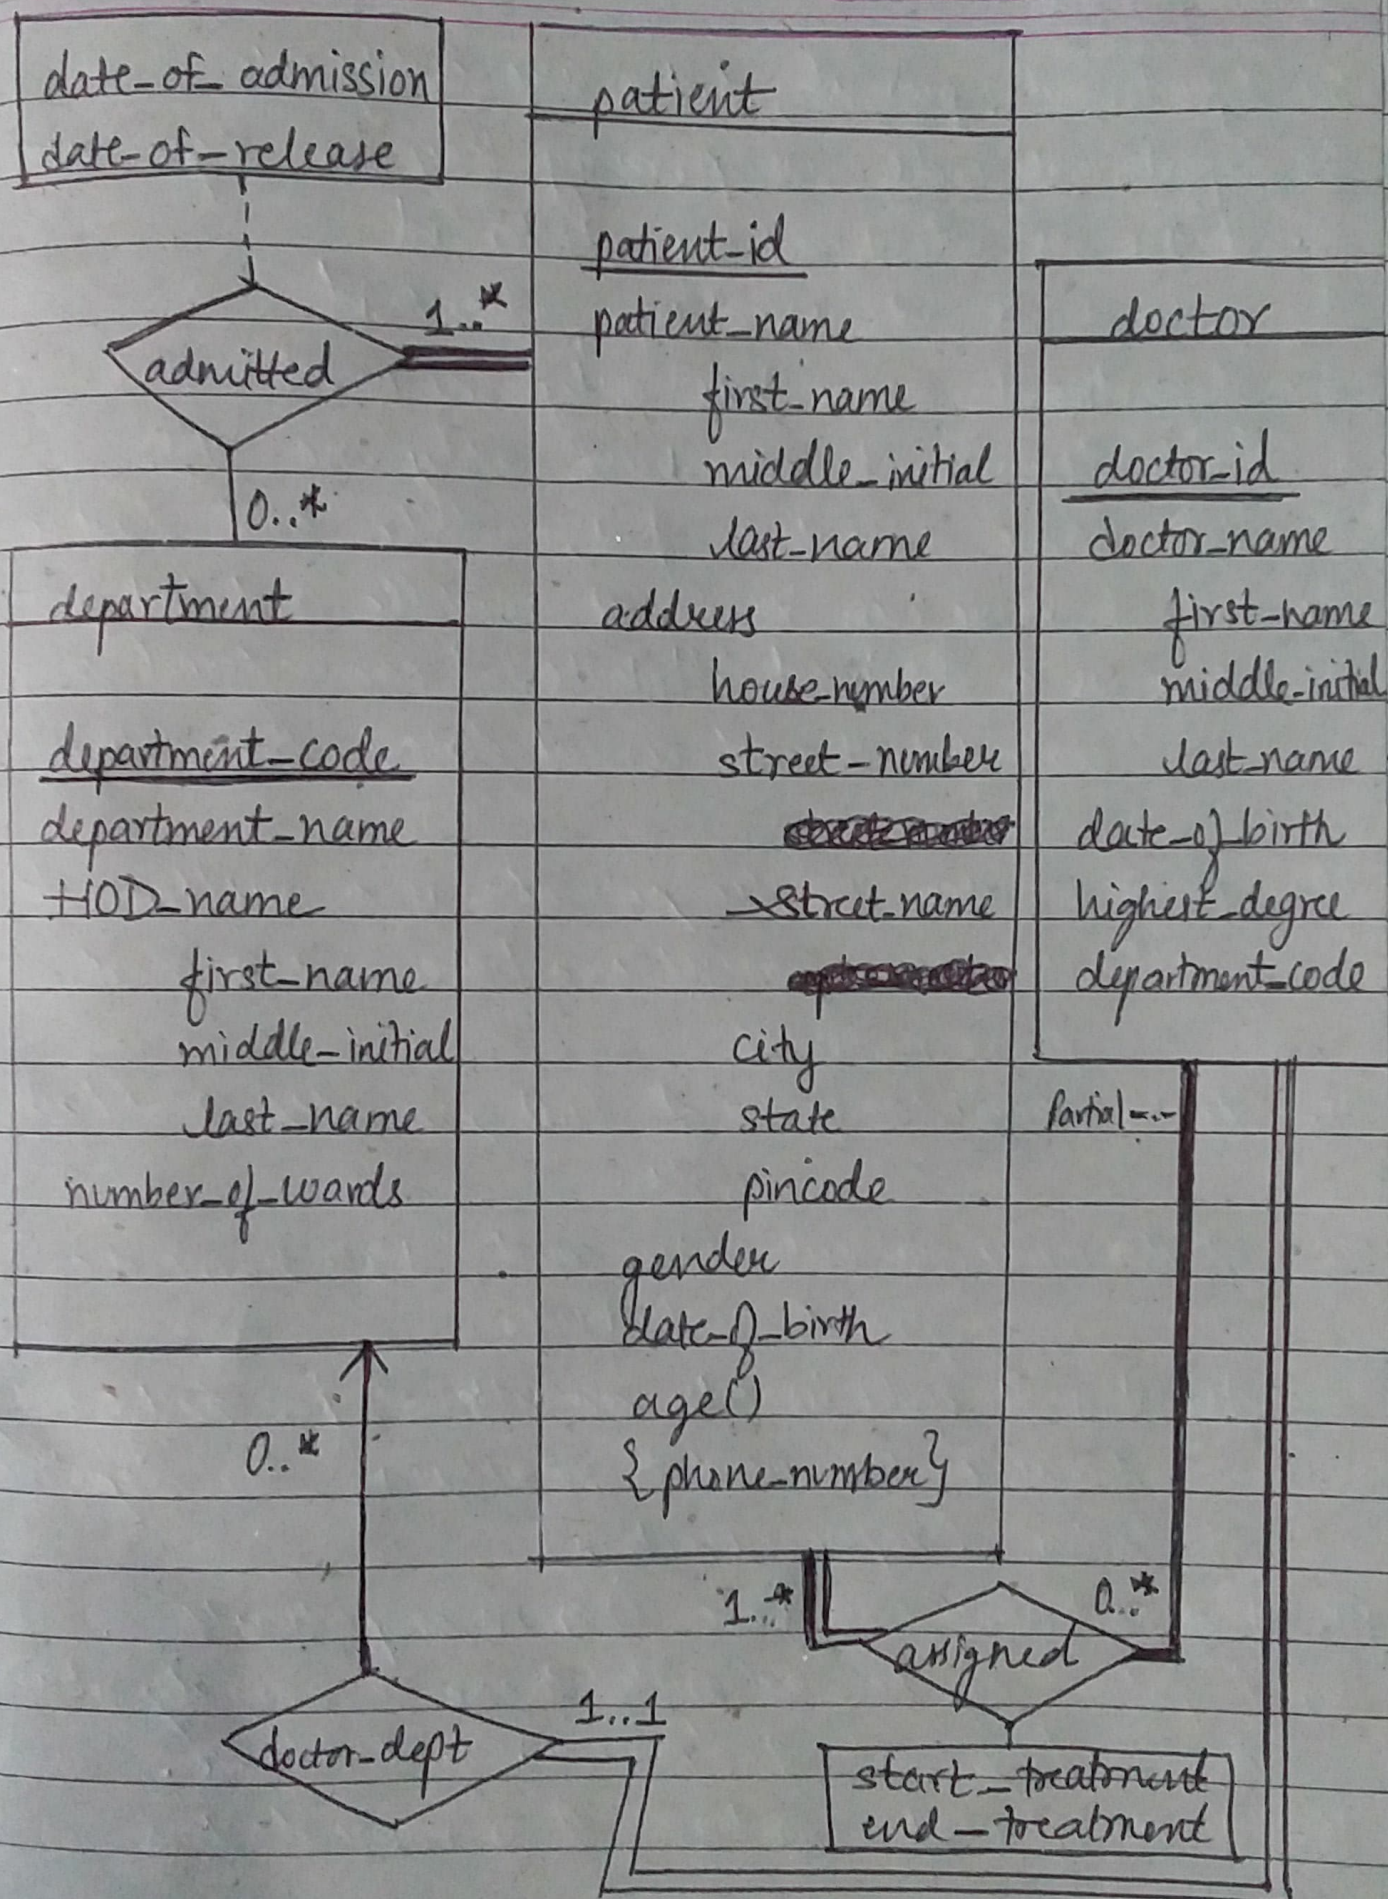 date_of_admission
date_of_release
admitted
1..*
0..*
department
department_code
department_name
HOD_name
first_name
middle_initial
last_name
number_of_wards
0..*
doctor_dept
1..1
patient
patient_id
patient_name
first_name
middle_initial
last_name
address
house_number
street_number
street_name
city
state
pincode
gender
date_of_birth
age()
{phone_number}
1..*
assigned
0..*
start_treatment
end_treatment
doctor
doctor_id
doctor_name
first_name
middle_initial
last_name
date_of_birth
highest_degree
department_code
Partial